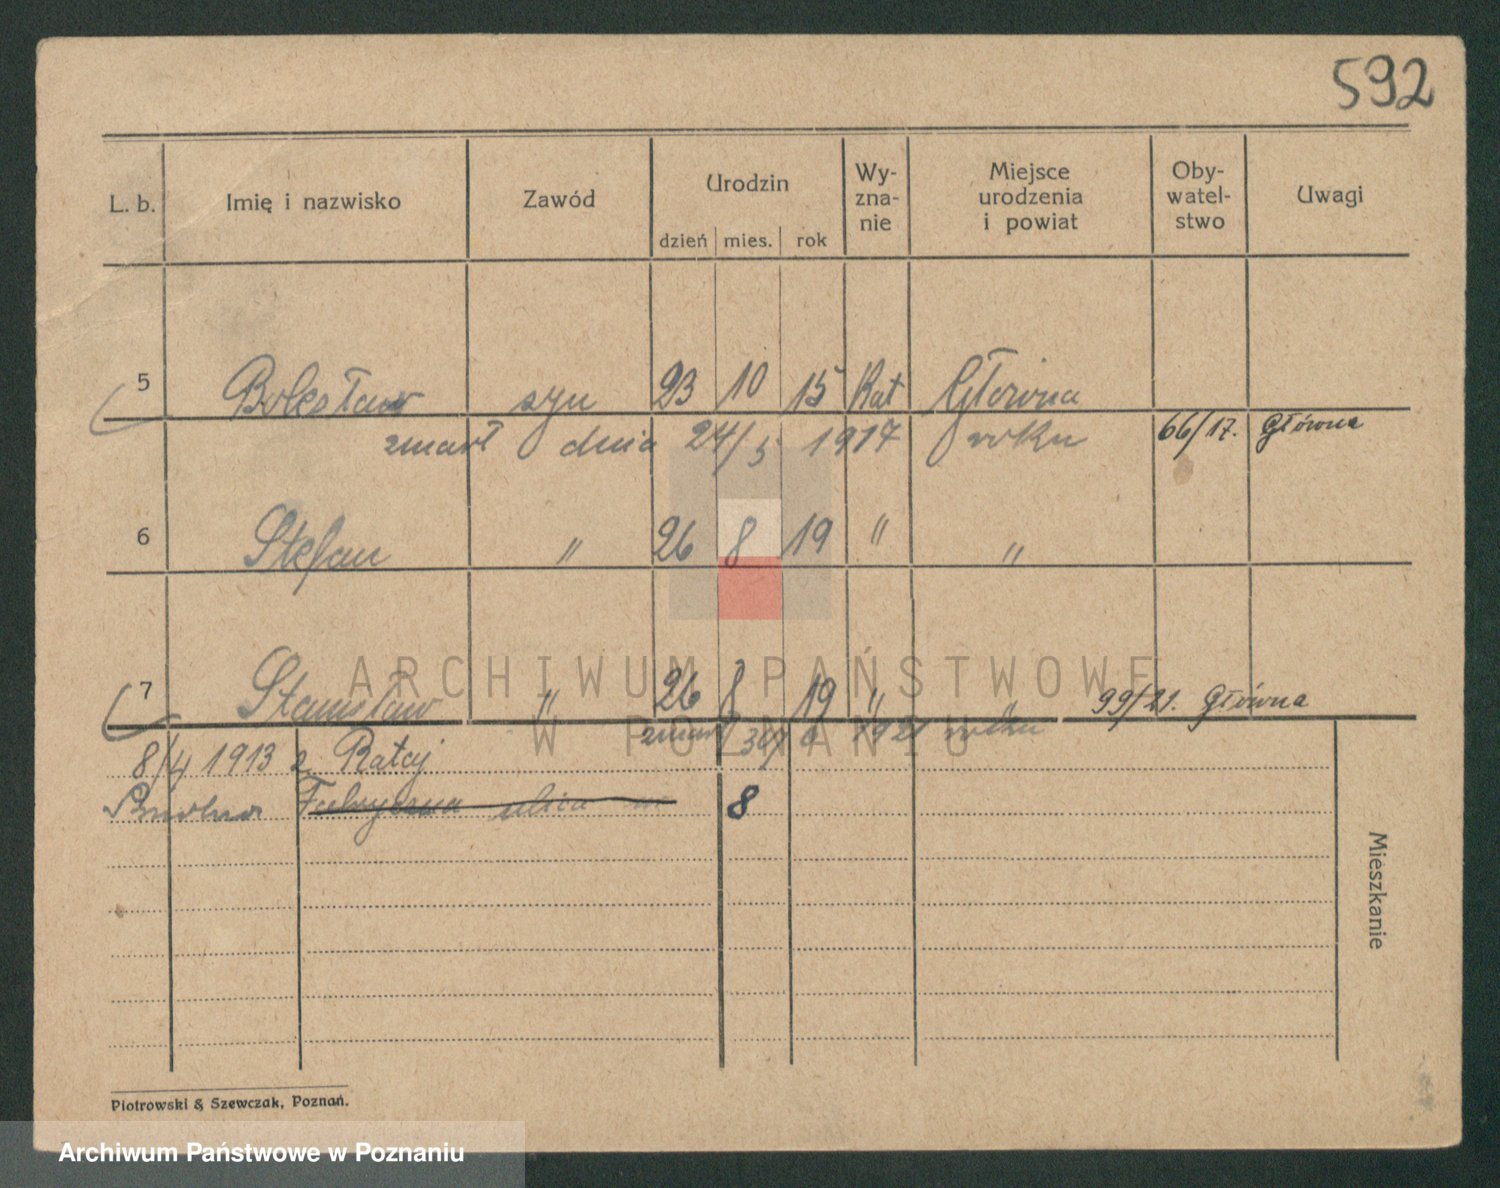 592
L. b. Imię i nazwisko Zawód Urodzin dzień mies. rok Wy-zna-nie Miejsce urodzenia i powiat Oby-watel-stwo Uwagi
5 Bolesław syn 23 10 15 Kat Główna
zmarł dnia 24/5 1917 roku 66/17. Główna
6 Stefan " 26 8 19 " "
ARCHIWUM PAŃSTWOWE
7 Stanisław " 26 8 19 " 99/21. Główna
W POZNANIU
zmarł 1921 roku
8/4 1913 z Rataj
Fabryczna ulica 8
Mieszkanie
Piotrowski & Szewczak, Poznań.
Archiwum Państwowe w Poznaniu